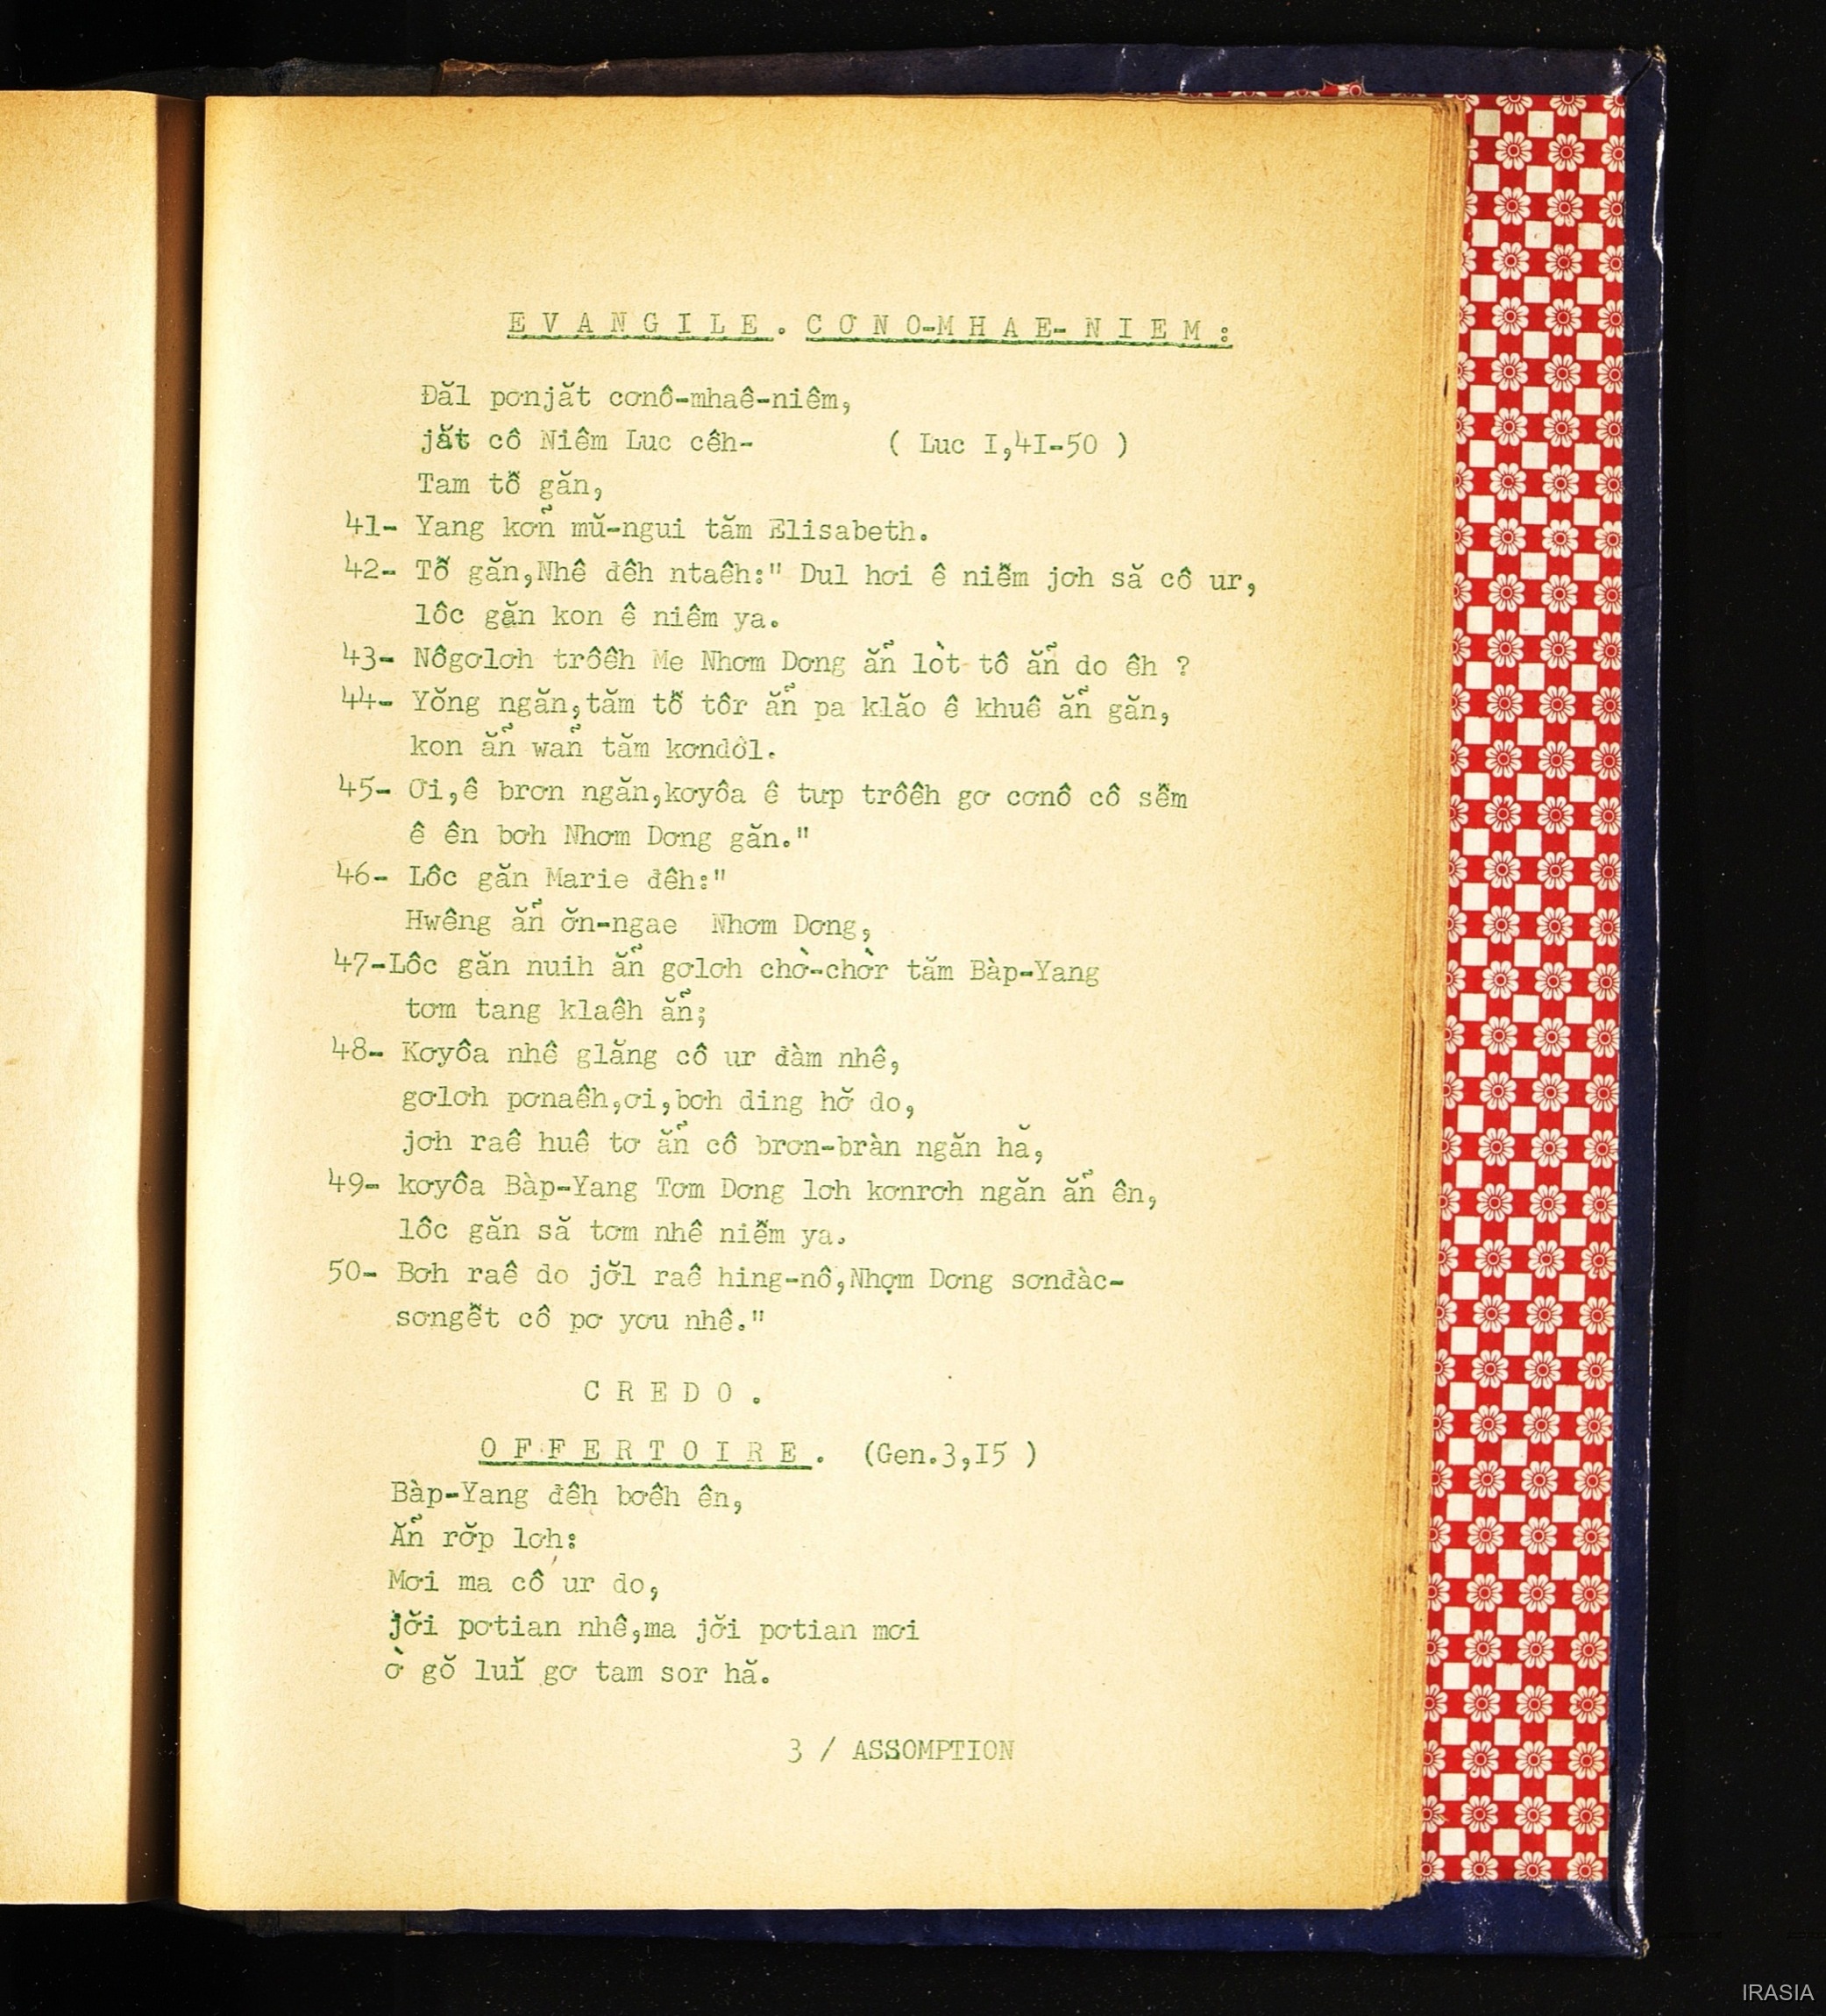 EVANGILE. CƠNO-MHAE-NIEM:
Đăl pơnjăt cơnô-mhaê-niêm,
jăt cô Niêm Luc cêh- ( Luc I,41-50 )
Tam tỗ găn,
41- Yang kơn̉ mŭ-ngui tăm Elisabeth.
42- Tỗ găn,Nhê đêh ntaêh:" Dul hơi ê niễm jơh să cô ur,
lôc găn kon ê niêm ya.
43- Nôgơlơh trôêh Me Nhơm Dơng ăn̉ lòt tô ăn̉ do êh ?
44- Yŏng ngăn,tăm tỗ tôr ăn̉ pa klăo ê khuê ăn̉ găn,
kon ăn̉ wan̉ tăm kơndôl.
45- Ơi,ê brơn ngăn,kơyôa ê tưp trôêh gơ cơnô cô sễm
ê ên bơh Nhơm Dơng găn."
46- Lôc găn Marie đêh:"
Hwêng ăn̉ ơ̆n-ngae Nhơm Dơng,
47-Lôc găn nuih ăn̉ gơlơh chờ-chờr tăm Bàp-Yang
tơm tang klaêh ăn̉;
48- Kơyôa nhê glăng cô ur đàm nhê,
gơlơh pơnaêh,ơi,bơh ding hơ̆ do,
jơh raê huê tơ ăn̉ cô brơn-bràn ngăn hă,
49- kơyôa Bàp-Yang Tơm Dơng lơh kơnrơh ngăn ăn̉ ên,
lôc găn să tơm nhê niễm ya.
50- Bơh raê do jơ̆l raê hing-nô,Nhợm Dơng sơnđàc-
sơngễt cô pơ yơu nhê."
CREDO.
OFFERTOIRE. (Gen.3,I5 )
Bàp-Yang đêh bơêh ên,
Ăn̉ rơ̆p lơh:
Mơi ma cô ur do,
jơ̆i pơtian nhê,ma jơ̆i pơtian mơi
ờ gŏ luĭ gơ tam sor hă.
3 / ASSOMPTION
IRASIA